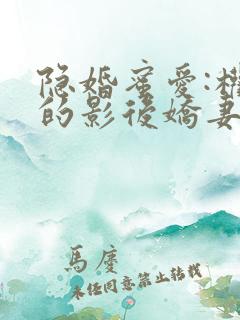 隐婚蜜爱:权
的影後嬌妻
馬慶
未任同意禁止转载